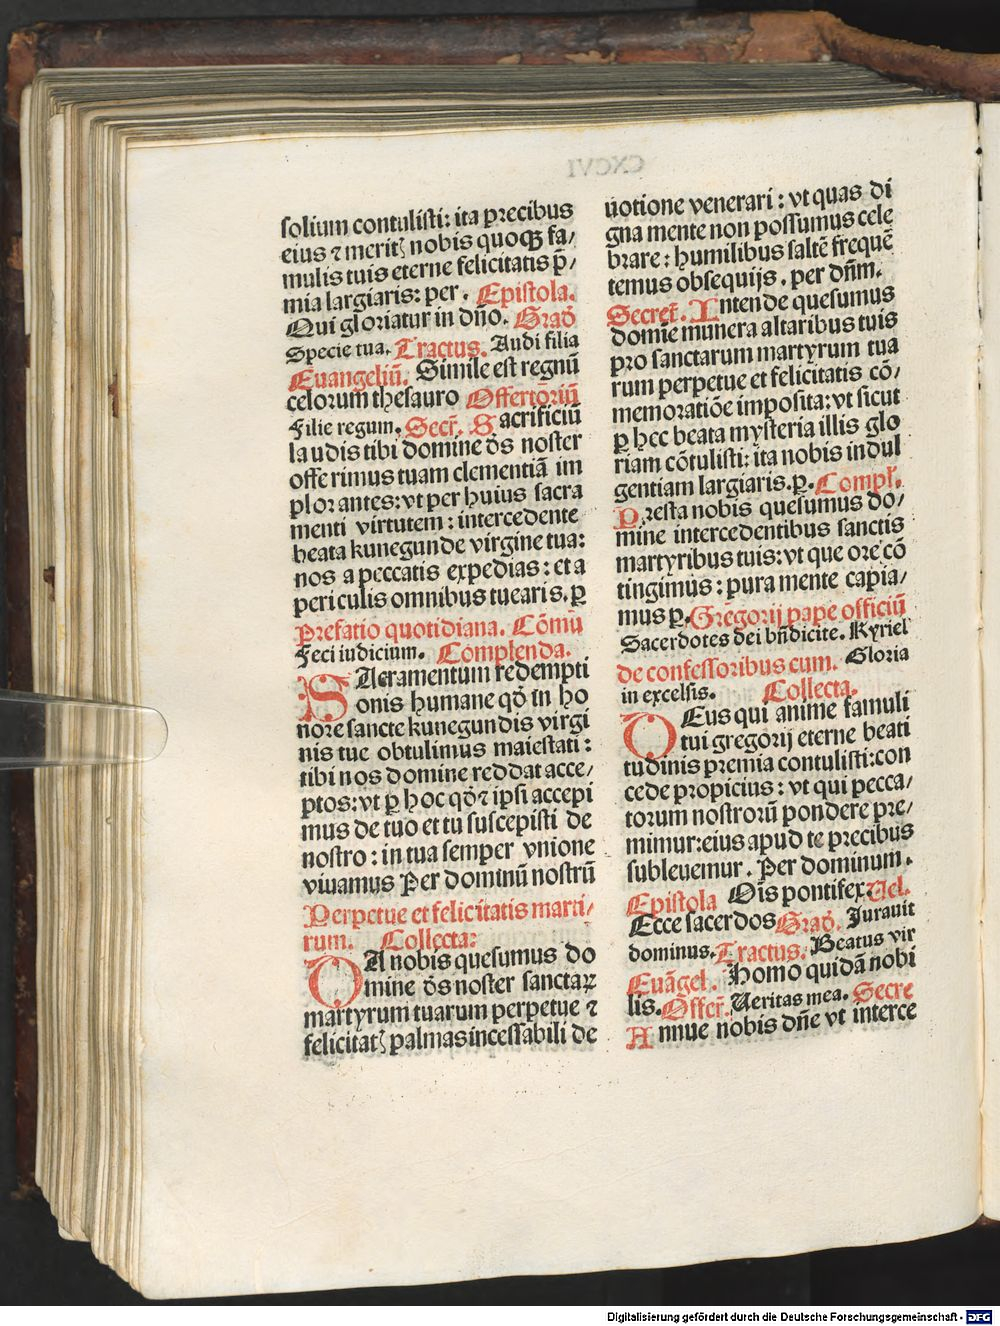 solium contulisti: ita precibus
eius ⁊ meritꝭ nobis quoqꝫ fa/
mulis tuis eterne felicitatis p̄/
mia largiaris: per. Epistola.
Qui gloriatur in dn̄o. Grad̄
Specie tua. Tractus. Audi filia
Euangeliū. Simile est regnū
celorum thesauro Offertoriū
Filie regum. Secr̄. Sacrificiū
laudis tibi domine d̄s noster
offerimus tuam clementiā im
plorantes: vt per huius sacra
menti virtutem: intercedente
beata kunegunde virgine tua:
nos a peccatis expedias: et a
periculis omnibus tuearis. ꝑ
Prefatio quotidiana. Cōmū
Feci iudicium. Complenda.
SAcramentum redempti
onis humane qd̄ in ho
nore sancte kunegundis virgi
nis tue obtulimus maiestati:
tibi nos domine reddat acce/
ptos: vt ꝑ hoc qd̄ ⁊ ipsi accepi
mus de tuo et tu suscepisti de
nostro: in tua semper vnione
viuamus Per dominū nostrū
Perpetue et felicitatis marti/
rum. Collecta:
DA nobis quesumus do
mine d̄s noster sanctaꝝ
martyrum tuarum perpetue ⁊
felicitatꝭ palmas incessabili de
uotione venerari: vt quas di
gna mente non possumus cele
brare: humilibus saltē frequē
temus obsequijs. per dn̄m.
Secret̄. Intende quesumus
domie munera altaribus tuis
pro sanctarum martyrum tua
rum perpetue et felicitatis cō/
memoratiōe imposita: vt sicut
ꝑ hec beata mysteria illis glo
riam cōtulisti: ita nobis indul
gentiam largiaris. ꝑ. Compl̄.
Presta nobis quesumus do/
mine intercedentibus sanctis
martyribus tuis: vt que ore cō
tingimus: pura mente capia/
mus ꝑ. Gregorij pape officiū
Sacerdotes dei bn̄dicite. Kyriel
de confessoribus cum. Gloria
in excelsis. Collecta.
DEus qui anime famuli
tui gregorij eterne beati
tudinis premia contulisti: con
cede propicius: vt qui pecca/
torum nostrorū pondere pre/
mimur: eius apud te precibus
subleuemur. Per dominum.
Epistola Oīs pontifex. Uel.
Ecce sacerdos Grad̄. Jurauit
dominus. Tractus. Beatus vir
Euāgel. Homo quidā nobi
lis. Offer̄. Ueritas mea. Secre
Annue nobis dn̄e vt interce
Digitalisierung gefördert durch die Deutsche Forschungsgemeinschaft - DFG